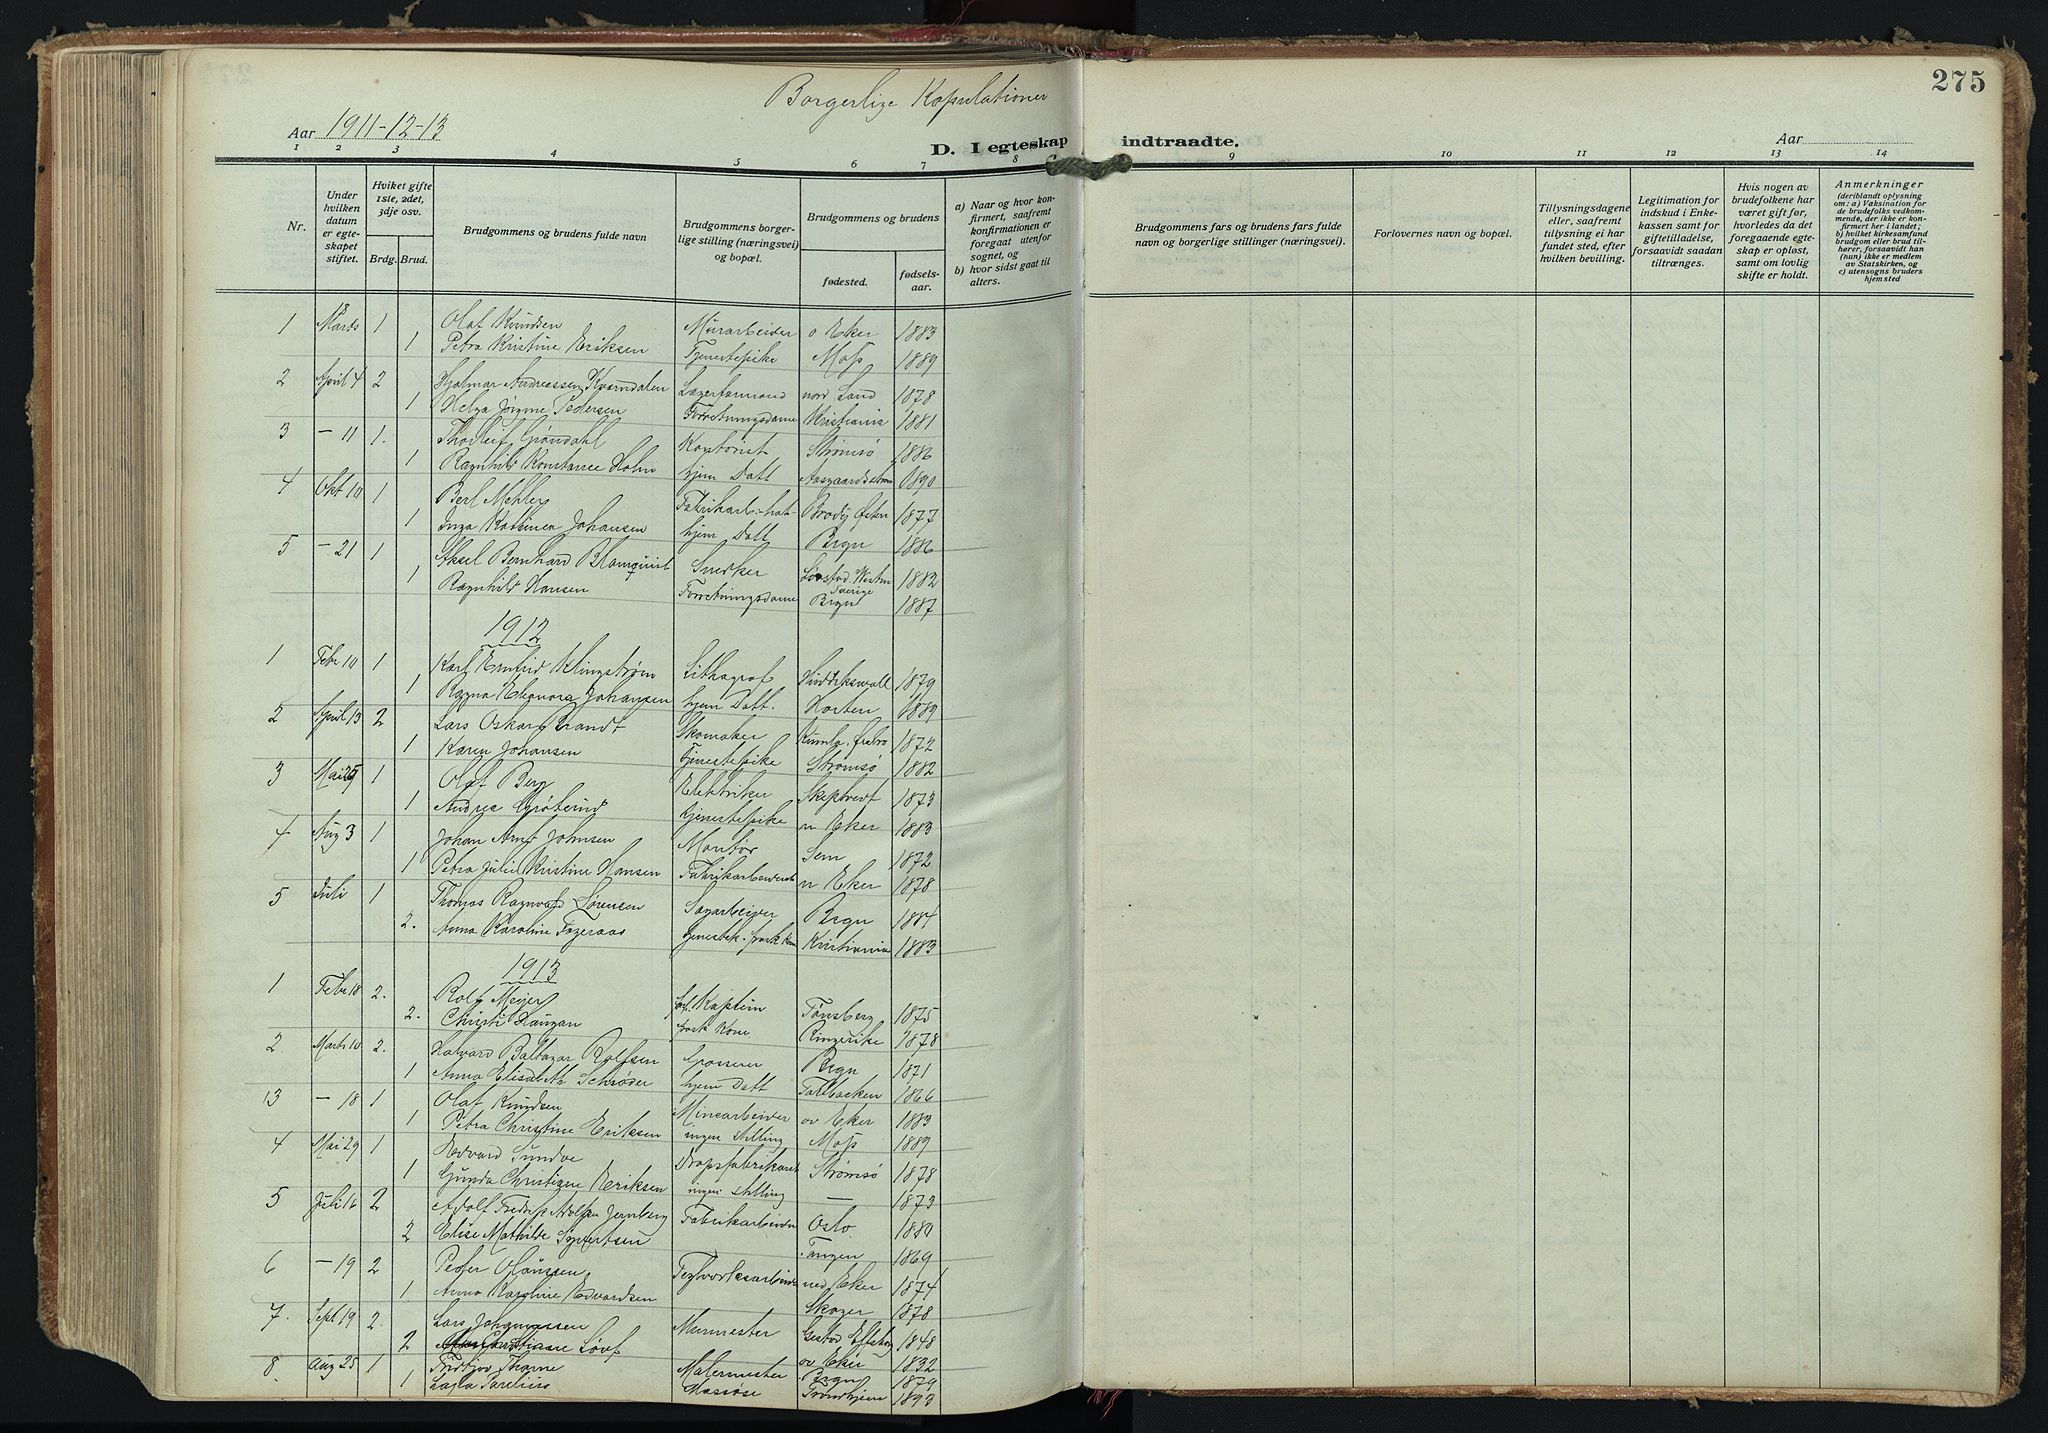 275
Borgerlige Kopulationer
Aar 1911-12-13
Aar
D. I egteskap indtraadte.
1 2 3 4 5 6 7 8 9 10 11 12 13 14
Nr.
Under hvilken datum er egteskapet stiftet.
Hviket gifte 1ste, 2det, 3dje osv.
Brdg. Brud.
Brudgommens og brudens fulde navn
Brudgommens borgerlige stilling (næringsvei) og bopæl.
Brudgommens og brudens
fødested.
fødselsaar.
a) Naar og hvor konfirmert, saafremt konfirmationen er foregaat utenfor sognet, og
b) hvor sidst gaat til alters.
Brudgommens fars og brudens fars fulde navn og borgerlige stillinger (næringsvei).
Forlovernes navn og bopæl.
Tillysningsdagene eller, saafremt tillysning ei har fundet sted, efter hvilken bevilling.
Legitimation for indskud i Enkekassen samt for giftetilladelse, forsaavidt saadan tiltrænges.
Hvis nogen av brudefolkene har været gift før, hvorledes da det foregaaende egteskap er opløst, samt om lovlig skifte er holdt.
Anmerkninger (deriblandt oplysning om: a) Vaksination for de brudefolks vedkommende, der ikke er konfirmert her i landet; b) hvilket kirkesamfund brudgom eller brud tilhører, forsaavidt han (hun) ikke er medlem av Statskirken, og c) utensogns bruders hjemsted
1 Marts 18 1 Olaf Knudsen Murarbeider o Eker 1883
1 Petra Kristine Eriksen Tjenestepike Moss 1889
2 April 4 2 Hjalmar Andreassen Kvarndalen Lagerformand nord Land 1878
1 Helga Jørgine Pedersen Forretningsdame Kristiania 1881
3 - 11 1. Thorleif Grøndahl Kontorist Strømsø 1886
1 Ragnhild Konstanse Holm hjem Datt Aasgaardsstran 1890
4 Okt 10 1 Berl Mehler Fabrikarb. Brody 1877
1 Inga Kathinea Johansen hjem Datt Brgn 1886
5 - 21 1 Aksel Bernhard Blomquist Snedker Sverige 1882
1 Ragnhild Hansen Forretningsdame Brgn 1887
1912
1 Febr 10 1 Karl Ernfrid Klingstrøm Lithograf Hudiksvall 1879
1 Ragna Eleonora Johansen hjem Datt. Horten 1889
2 April 13 2 Lars Oskar Brandt Skomaker Kumla. Ørebro 1872
1 Karen Johansen Tjenestepike Strømsø 1882
3 Mai 25 1 Olaf Berg Elektriker Skeptvedt 1873
1 Andrea Grøterud tjenestepike n Eker 1883
4 Aug 3 1 Johan Arnt Johnsen Montør Sem 1872
1 Petra Julie Kristine Hansen Fabrikarbeidersk n Eker 1878
5 Juli 1 Thomas Ragnvald Sørensen Sagarbeider Brgn 1884
2. Anna Karoline Fageraas tjenestek. frask Kone Kristiania 1883
1913
1 Febr 18 2. Rolf Meyer Kaptein Tønsberg 1875
2. Christi Haugan frask Kone Ringerike 1878
2. Marts 10 2. Halvard Baltazar Rolfsen Grosserer Brgn 1871
1 Anna Elisabeth Schrøder hjem Datt Falkbacken 1866
13 - 18 1 Olaf Knudsen Minearbeider ov Eker 1883
1 Petra Christine Eriksen ingen stilling Moss 1889
4 Mai 29 1 Edvard Sundve Dropsfabrikant Strømsø 1878
1 Gunda Christiane Eriksen ingen stilling — 1873
5 Juli 16 2 Adolf Fredrik Adolfsen Jernberg Fabrikarbeider Oslo 1880
2 Elise Mathilde Syvertsen Tangen 1869
6 - 19 2 Peder Olaussen Teglverksarbeider ned Eker 1874
1 Anna Karoline Edvardsen Skoger 1878
7. Sept 19 2. Lars Johannessen Murmester Gestad 1848
2 Christiane Løvf ov Eker 1832
8. Aug 25 1 Fridtjov Thorne Malermester Brgn 1879
1 Laila Parelius Massøse Trondhjem 1893